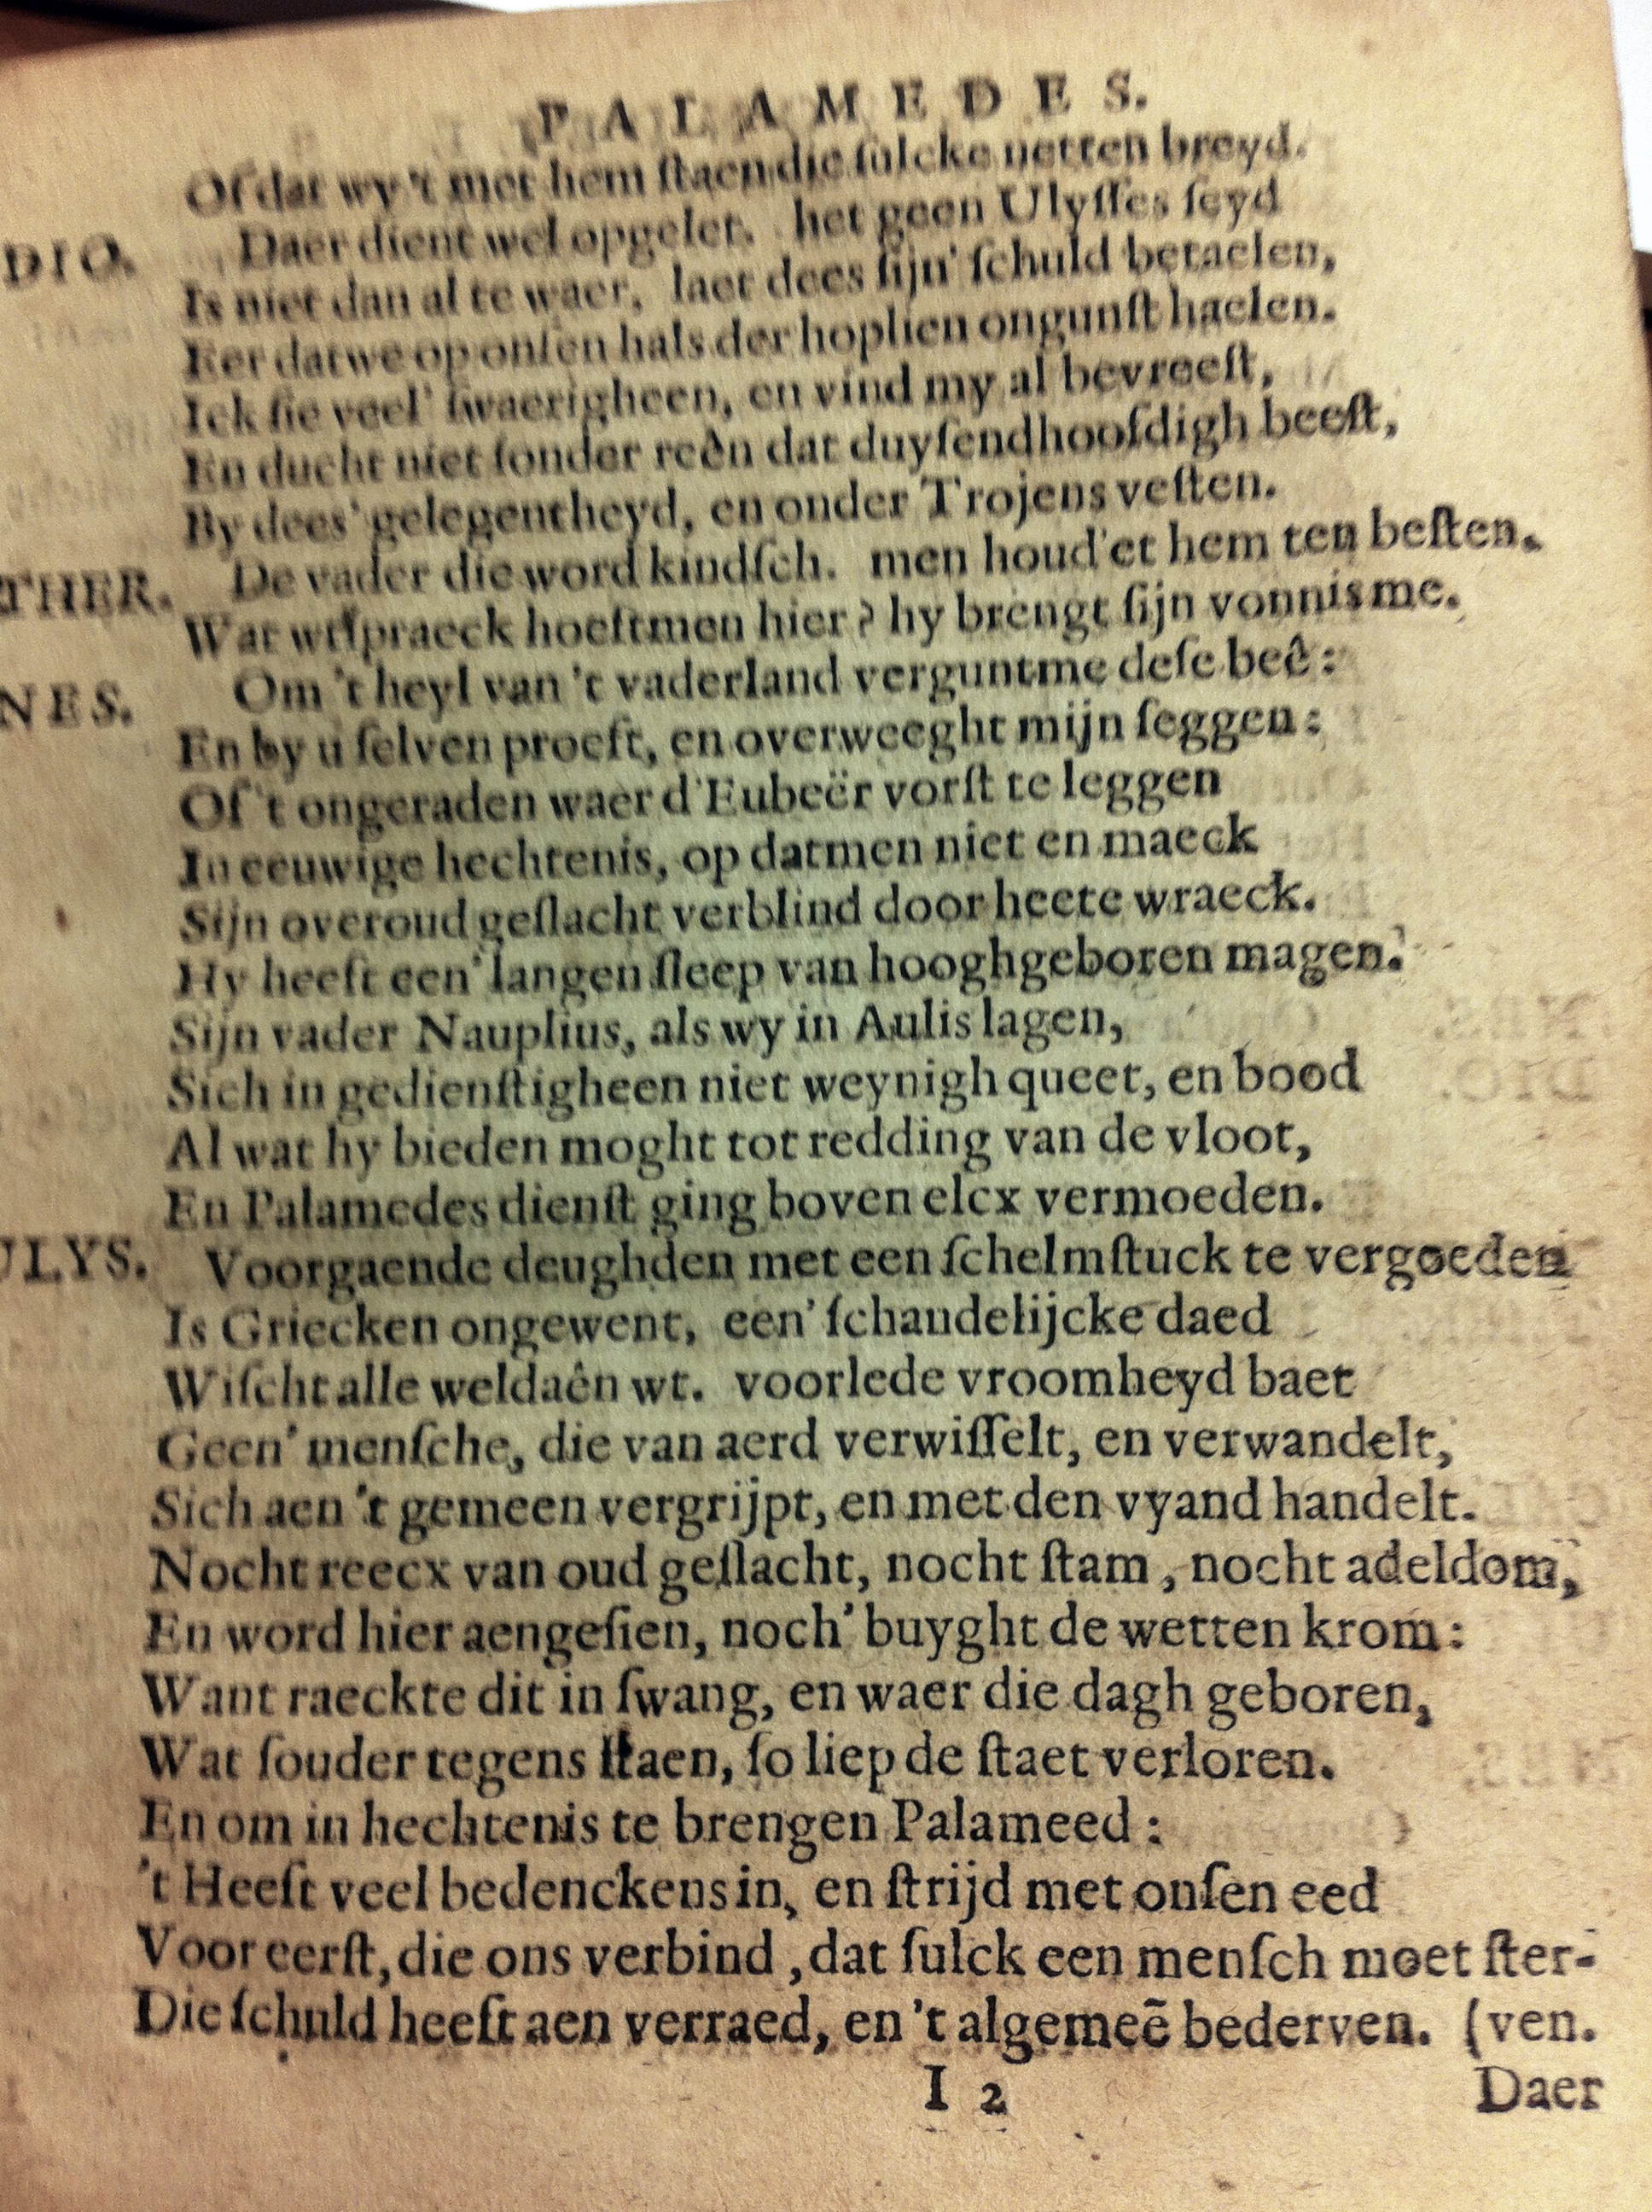 PALAMEDES.
Of dat wy 't met hem ſtaen die ſulcke netten breyd.
DIO. Daer dient wel opgelet. het geen Ulyſſes ſeyd
Is niet dan al te waer. laet dees ſijn' ſchuld betaelen,
Eer datwe op onſen hals der hoplien ongunſt haelen.
Ick ſie veel' ſwaerigheen, en vind my al bevreeſt,
En ducht niet ſonder reên dat duyſendhoofdigh beeſt,
By dees' gelegentheyd, en onder Trojens veſten.
THER. De vader die word kindſch. men houd'et hem ten beſten.
Wat wtſpraeck hoeftmen hier? hy brengt ſijn vonnis me.
NES. Om 't heyl van 't vaderland verguntme deſe beê:
En by u ſelven proeft, en overweeght mijn ſeggen:
Of 't ongeraden waer d'Eubeër vorſt te leggen
In eeuwige hechtenis, op datmen niet en maeck
Sijn overoud geſlacht verblind door heete wraeck.
Hy heeft een' langen ſleep van hooghgeboren magen.
Sijn vader Nauplius, als wy in Aulis lagen,
Sich in gedienſtigheen niet weynigh queet, en bood
Al wat hy bieden moght tot redding van de vloot,
En Palamedes dienſt ging boven elcx vermoeden.
ULYS. Voorgaende deughden met een ſchelmſtuck te vergoeden
Is Griecken ongewent, een' ſchandelijcke daed
Wiſcht alle weldaên wt. voorlede vroomheyd baet
Geen' menſche, die van aerd verwiſſelt, en verwandelt,
Sich aen 't gemeen vergrijpt, en met den vyand handelt.
Nocht reecx van oud geſlacht, nocht ſtam, nocht adeldom,
En word hier aengeſien, noch' buyght de wetten krom:
Want raeckte dit in ſwang, en waer die dagh geboren,
Wat ſouder tegens ſtaen, ſo liep de ſtaet verloren.
En om in hechtenis te brengen Palameed:
't Heeft veel bedenckens in, en ſtrijd met onſen eed
Voor eerſt, die ons verbind, dat ſulck een menſch moet ſter-
Die ſchuld heeft aen verraed, en 't algemeẽ bederven. (ven.
I 2
Daer